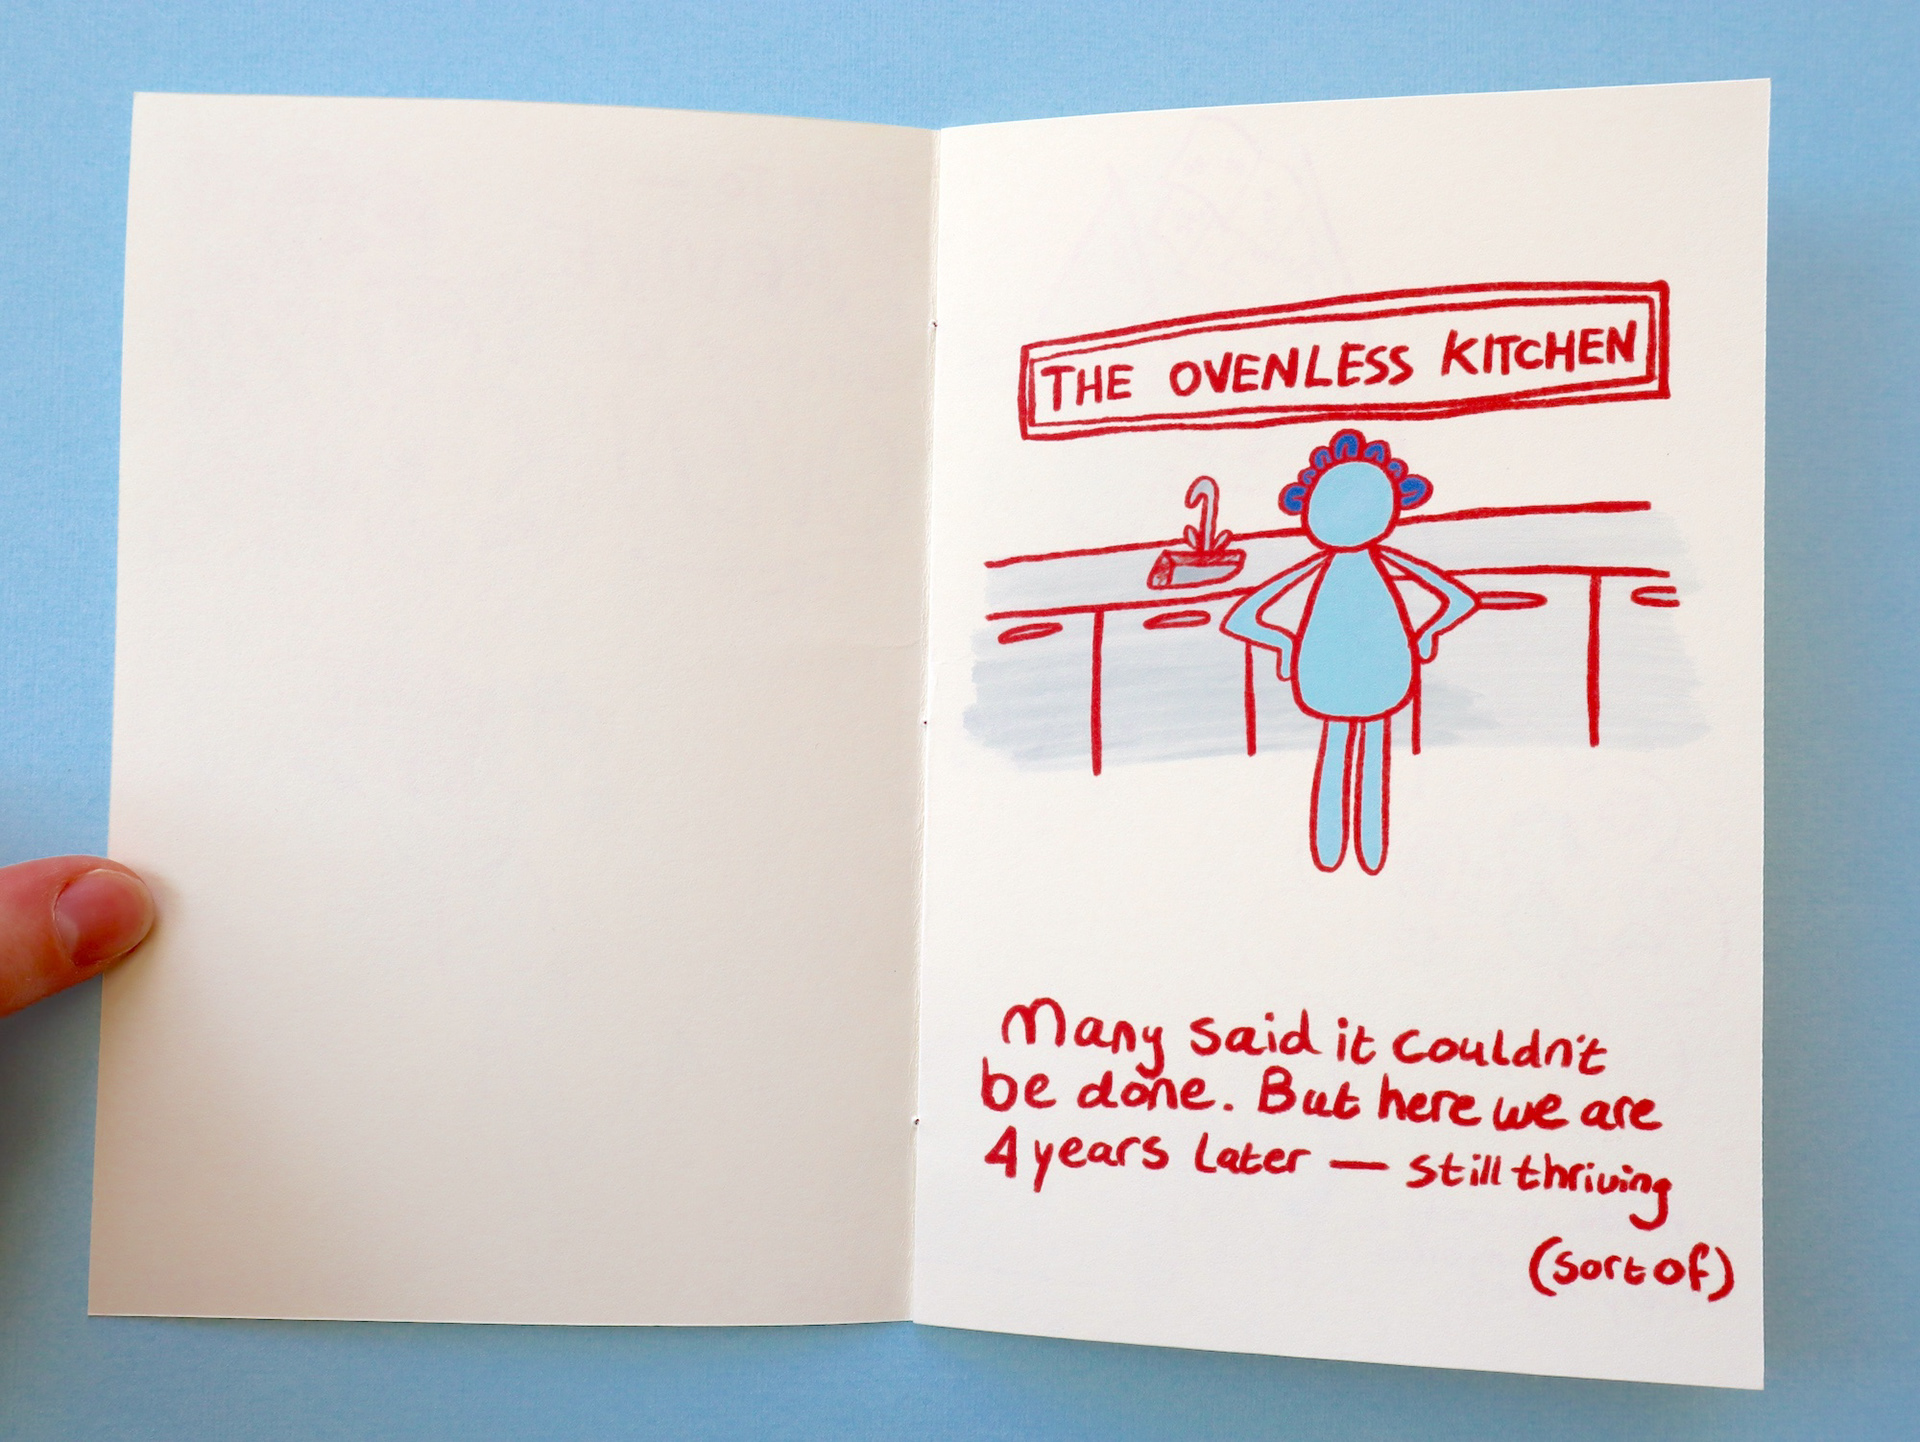 THE OVENLESS KITCHEN
Many said it couldn't
be done. But here we are
4 years later — still thriving
(sort of)